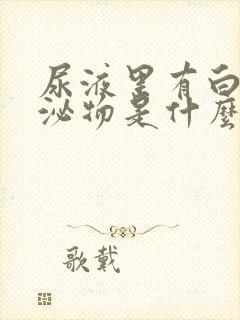 尿液里有白
泌物是什麼
歌戴